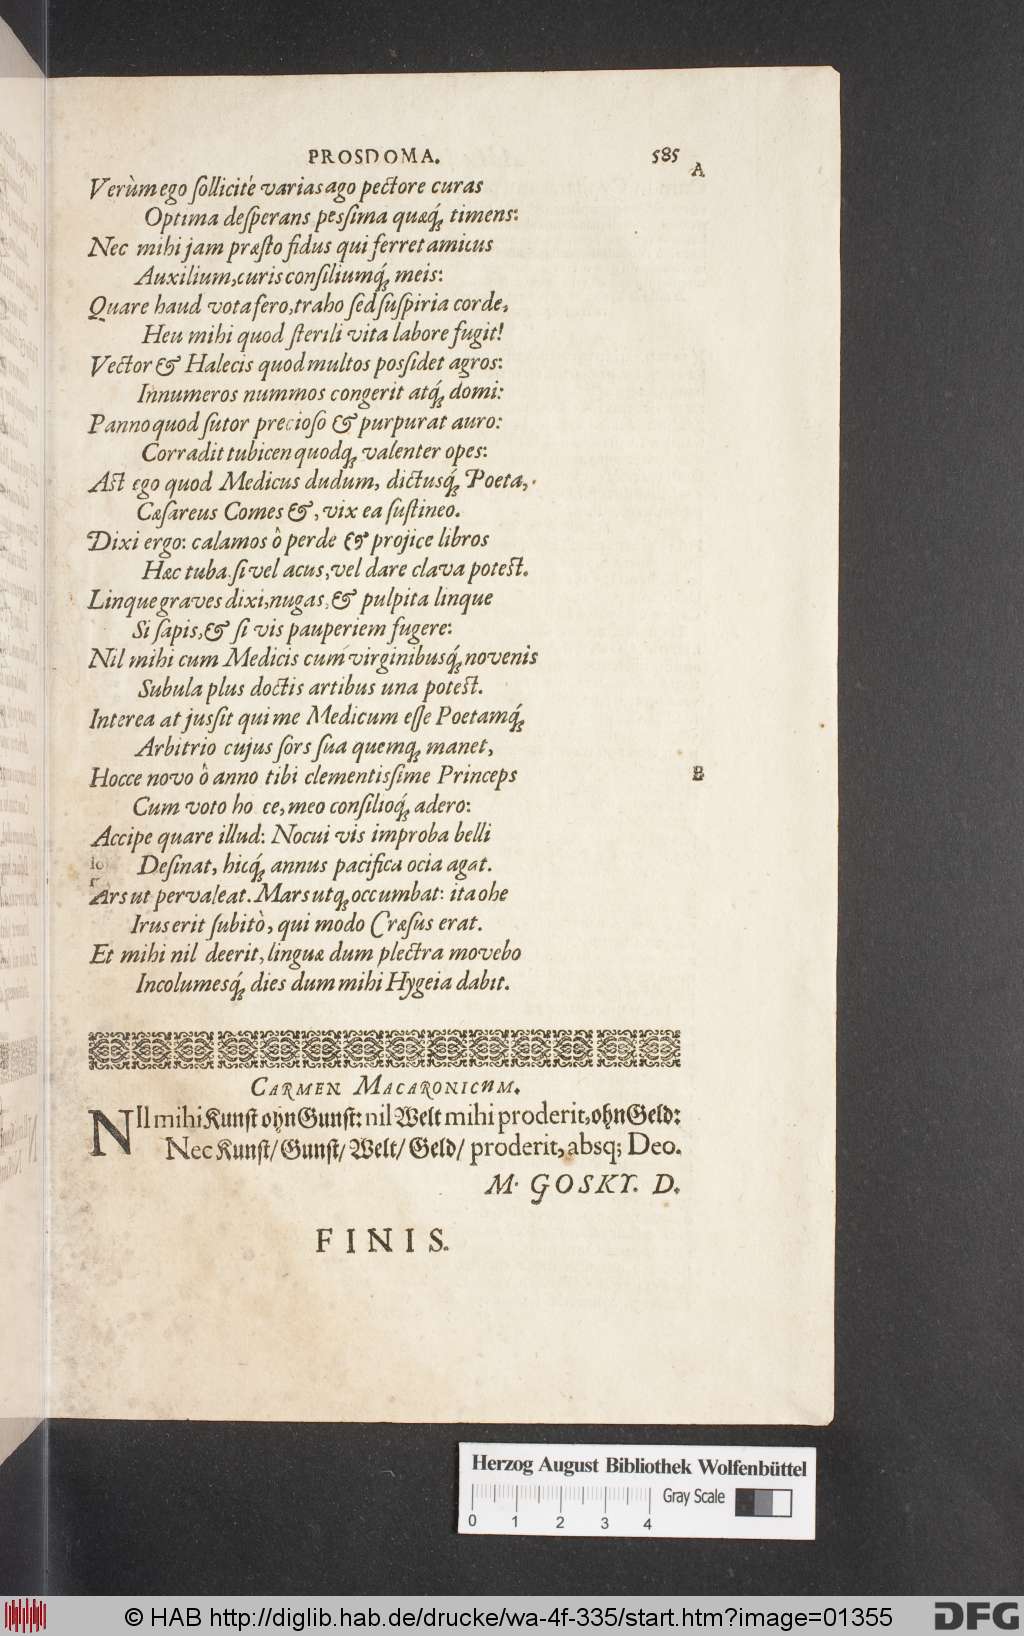 PROSDOMA. 585
A
Verùm ego ſollicité varias ago pectore curas
Optima deſperans peſsima quæq́; timens:
Nec mihi jam præſto fidus qui ferret amicus
Auxilium, curis conſiliumq́; meis:
Quare haud vota fero, traho ſed ſuſpiria corde,
Heu mihi quod ſterili vita labore fugit!
Vector & Halecis quod multos poſsidet agros:
Innumeros nummos congerit atq́; domi:
Panno quod ſutor precioſo & purpurat auro:
Corradit tubicen quodq; valenter opes:
Aſt ego quod Medicus dudum, dictusq́; Poeta,
Cæſareus Comes &, vix ea ſuſtineo.
Dixi ergo: calamos ô perde & projice libros
Hæc tuba ſi vel acus, vel dare clava poteſt.
Linque graves dixi, nugas, & pulpita linque
Si ſapis, & ſi vis pauperiem fugere:
Nil mihi cum Medicis cum virginibusq́; novenis
Subula plus doctis artibus una poteſt.
Interea at juſsit qui me Medicum eſſe Poetamq́;
Arbitrio cujus ſors ſua quemq; manet,
Hocce novo ô anno tibi clementiſsime Princeps
B
Cum voto ho ce, meo conſilioq́; adero:
Accipe quare illud: Nocui vis improba belli
Deſinat, hicq́; annus pacifica ocia agat.
Ars ut pervaleat. Mars utq; occumbat: ita ohe
Irus erit ſubitò, qui modo Cræſus erat.
Et mihi nil deerit, linguæ dum plectra movebo
Incolumesq́; dies dum mihi Hygeia dabit.
CARMEN MACARONICUM.
NIl mihi Kunſt ohn Gunſt: nil Welt mihi proderit, ohn Geld:
Nec Kunſt/ Gunſt/ Welt/ Geld/ proderit, absq; Deo.
M. GOSKY. D.
FINIS.
Herzog August Bibliothek Wolfenbüttel
Gray Scale
0 1 2 3 4
© HAB http://diglib.hab.de/drucke/wa-4f-335/start.htm?image=01355
DFG